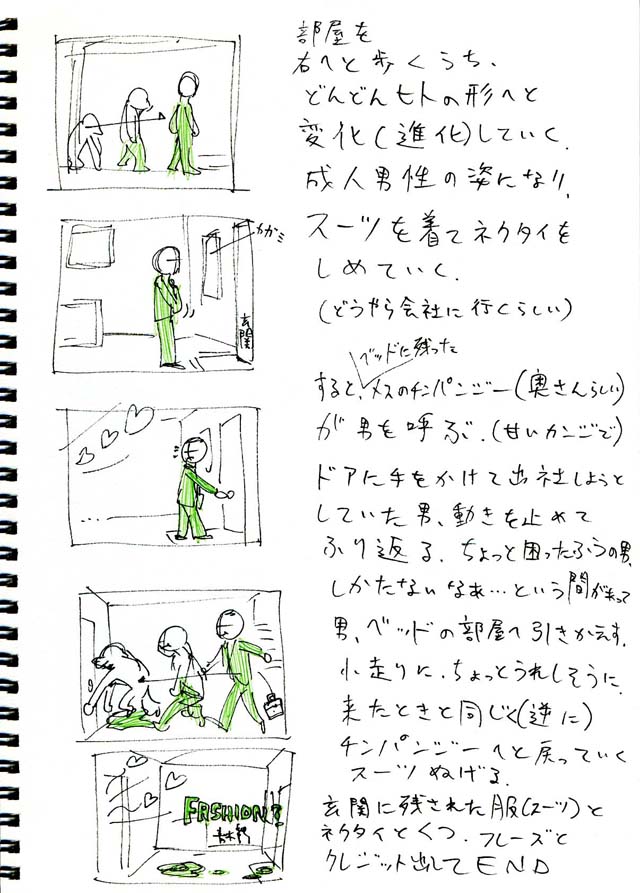 部屋を
右へと歩くうち、
どんどんヒトの形へと
変化(進化)していく。
成人男性の姿になり、
カガミ
スーツを着てネクタイを
しめていく。
玄関
(どうやら会社に行くらしい)
ベッドに残った
すると、メスのチンパンジー(奥さんらしい)
が男を呼ぶ。(甘いカンジで)
ドアに手をかけて出社しようと
していた男、動きを止めて
ふり返る。ちょっと困ったふうの男、
しかたないなぁ…という間があって
男、ベッドの部屋へ引きかえす。
小走りに、ちょっとうれしそうに、
来たときと同じく(逆に)
チンパンジーへと戻っていく
スーツぬげる。
FASHION?
玄関に残された服(スーツ)と
ネクタイとくつ。フレーズと
クレジット出してEND